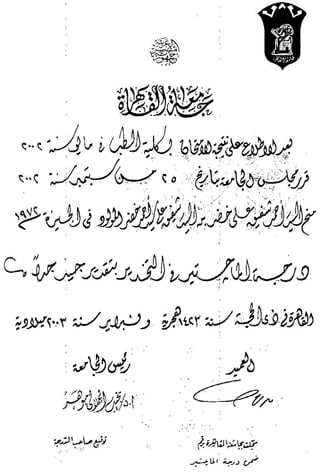 جامعة القاهرة
بعد الاطلاع على نتيجة الامتحان بكلية الطب في مايو سنة ٢٠٠٢
قرر مجلس الجامعة بتاريخ ٢٥ من سبتمبر سنة ٢٠٠٢
منح السيد أحمد شفيق على خضر المولود في الجيزة سنة ١٩٧٢
درجة الماجستير في التخدير بتقدير جيد جدا
القاهرة في ذى الحجة سنة ١٤٢٣ هجرية وفبراير سنة ٢٠٠٣ ميلادية
العميد رئيس الجامعة
سجلت بجامعة القاهرة برقم توقيع صاحب الدرجة
ضمن درجة الماجستير